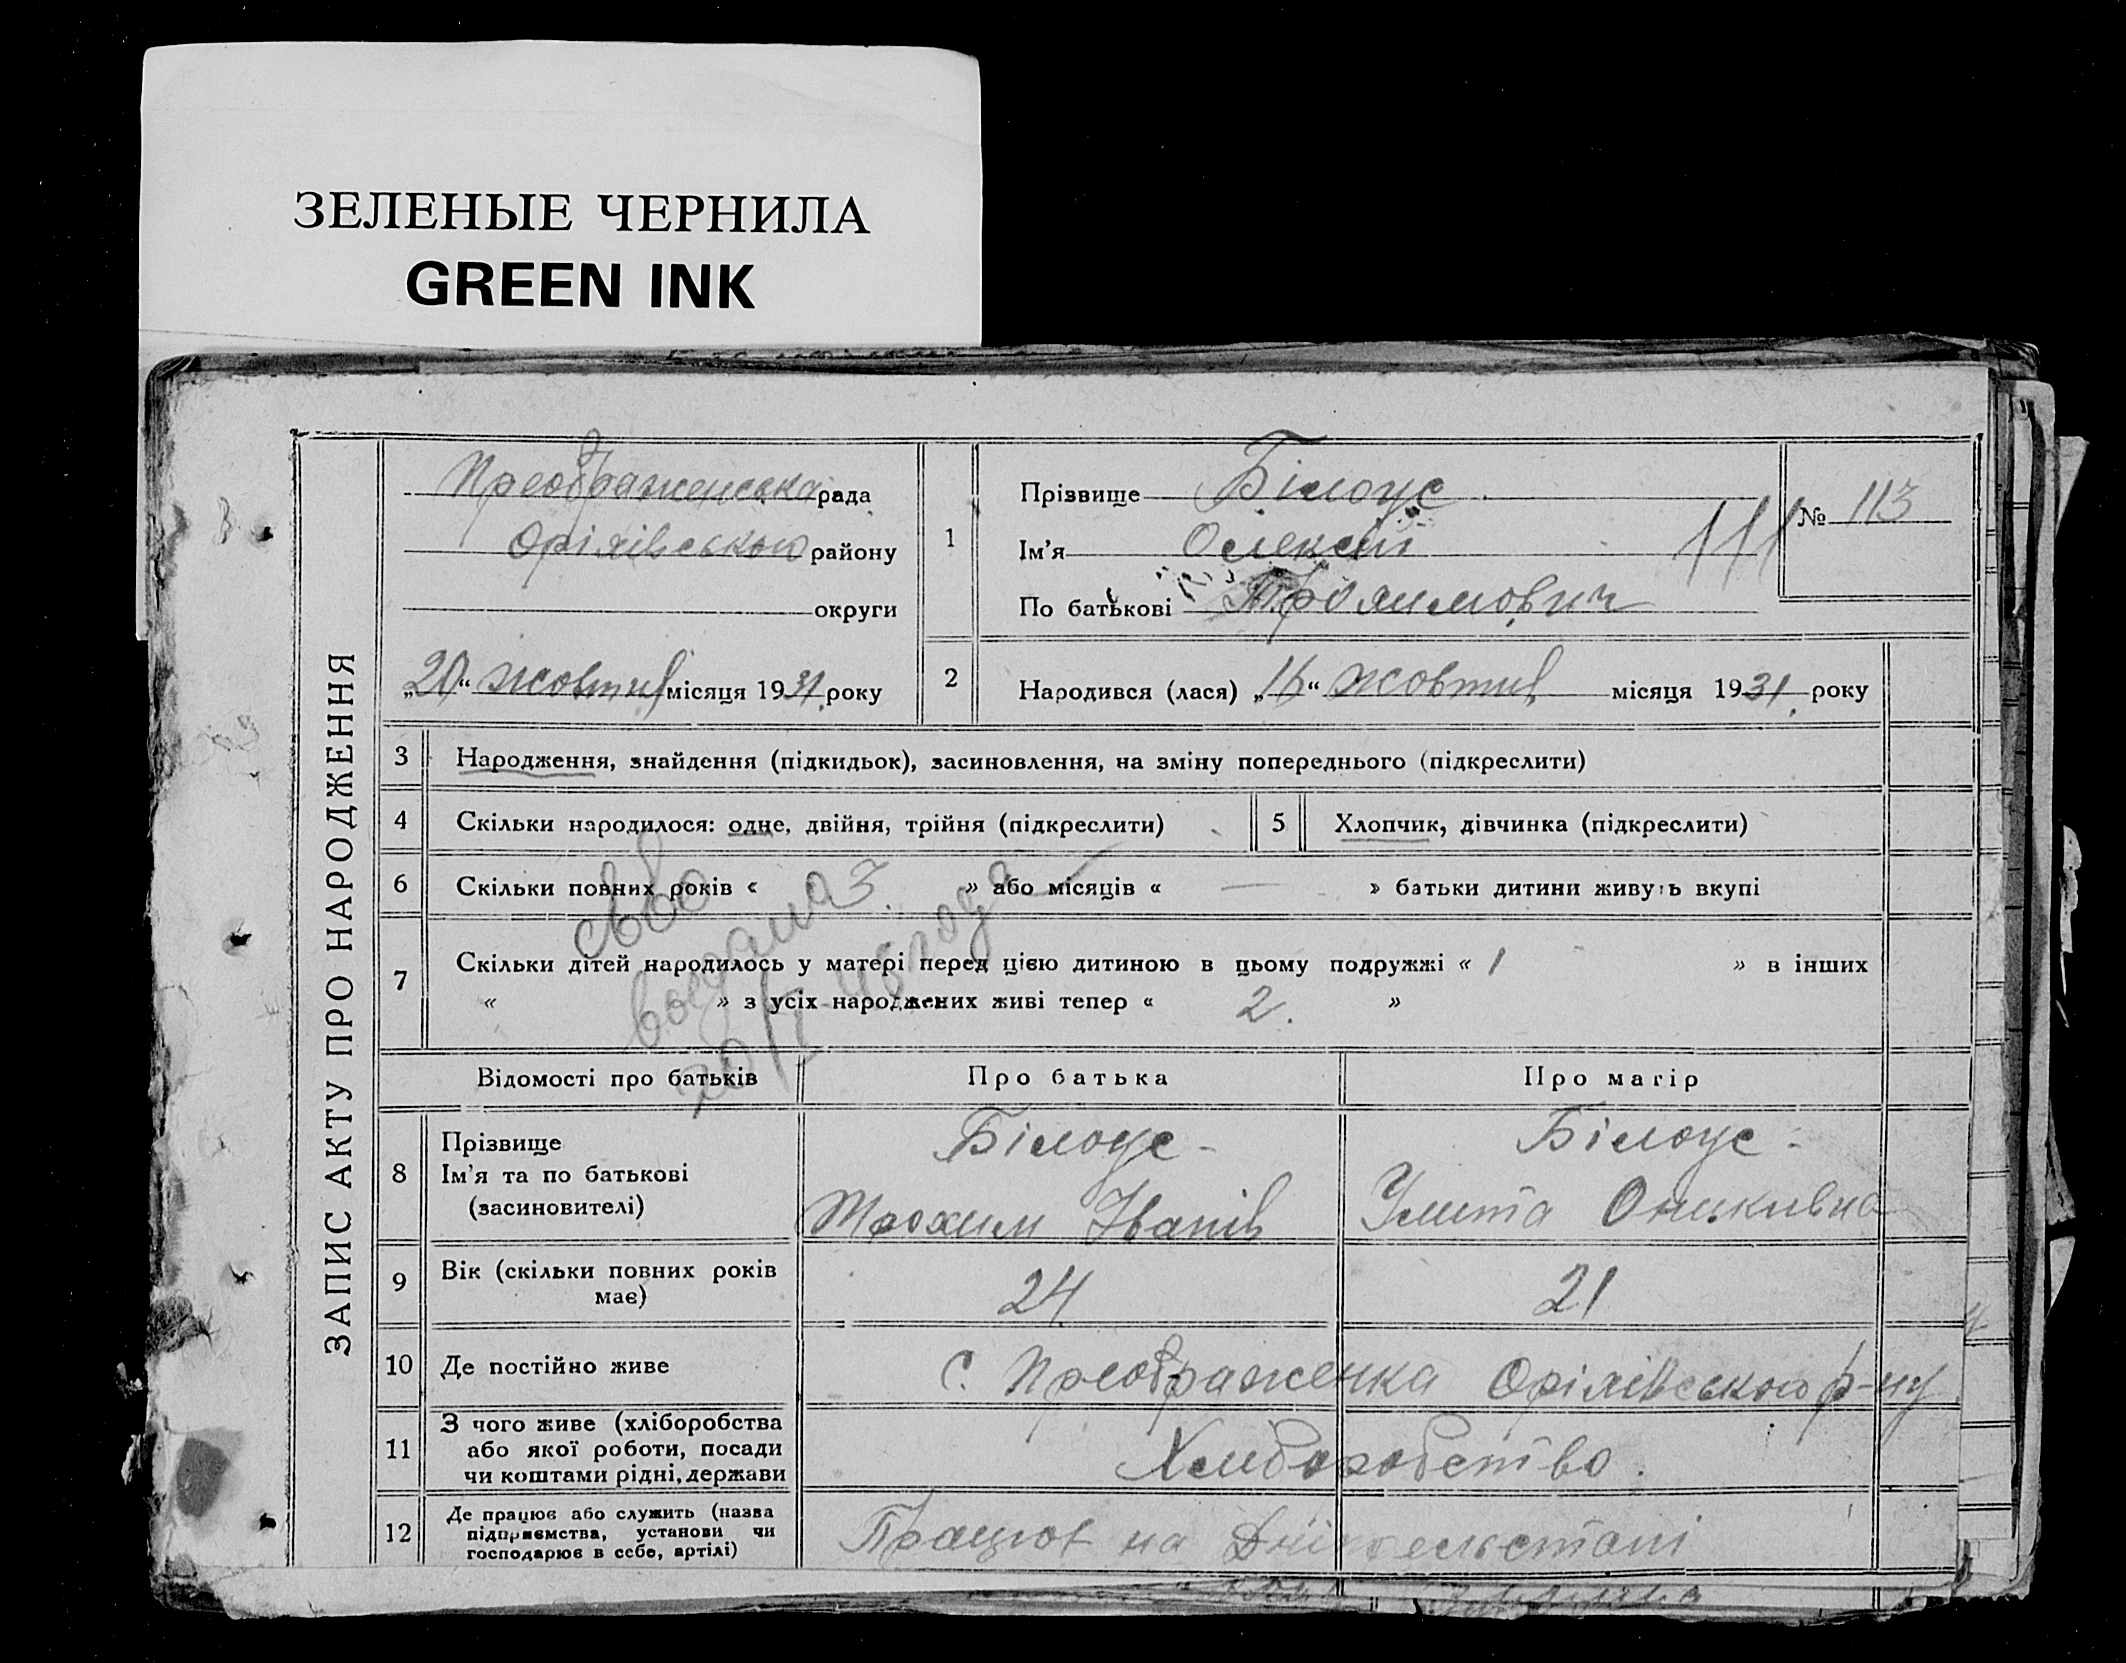 ЗЕЛЕНЫЕ ЧЕРНИЛА
GREEN INK
ЗАПИС АКТУ ПРО НАРОДЖЕННЯ
Преображенська рада
Оріхівського району
округи
„20“ жовтня місяця 1931 року
1
Прізвище Білоус
Ім'я Олексій
По батькові Трохимович
111
№ 113
2
Народився (лася) „16“ жовтня місяця 1931 року
3 Народження, знайдення (підкидьок), засиновлення, на зміну попереднього (підкреслити)
4 Скільки народилося: одне, двійня, трійня (підкреслити)
5 Хлопчик, дівчинка (підкреслити)
6 Скільки повних років « 3. » або місяців « — » батьки дитини живуть вкупі
7 Скільки дітей народилось у матері перед цією дитиною в цьому подружжі « 1 » в інших
« » з усіх народжених живі тепер « 2. »
сво
выдана
20/I-46 года
Відомості про батьків
Про батька
Про матір
8 Прізвище
Ім'я та по батькові
(засиновителі)
Білоус
Трохим Іванів
Білоус
Улита Оникивна
9 Вік (скільки повних років
має)
24
21
10 Де постійно живе
с. Преображенка Оріхівського р-ну
11 З чого живе (хліборобства
або якої роботи, посади
чи коштами рідні, держави
Хлиборобство.
12 Де працює або служить (назва
підприємства, установи чи
господарює в себе, артілі)
Працює на